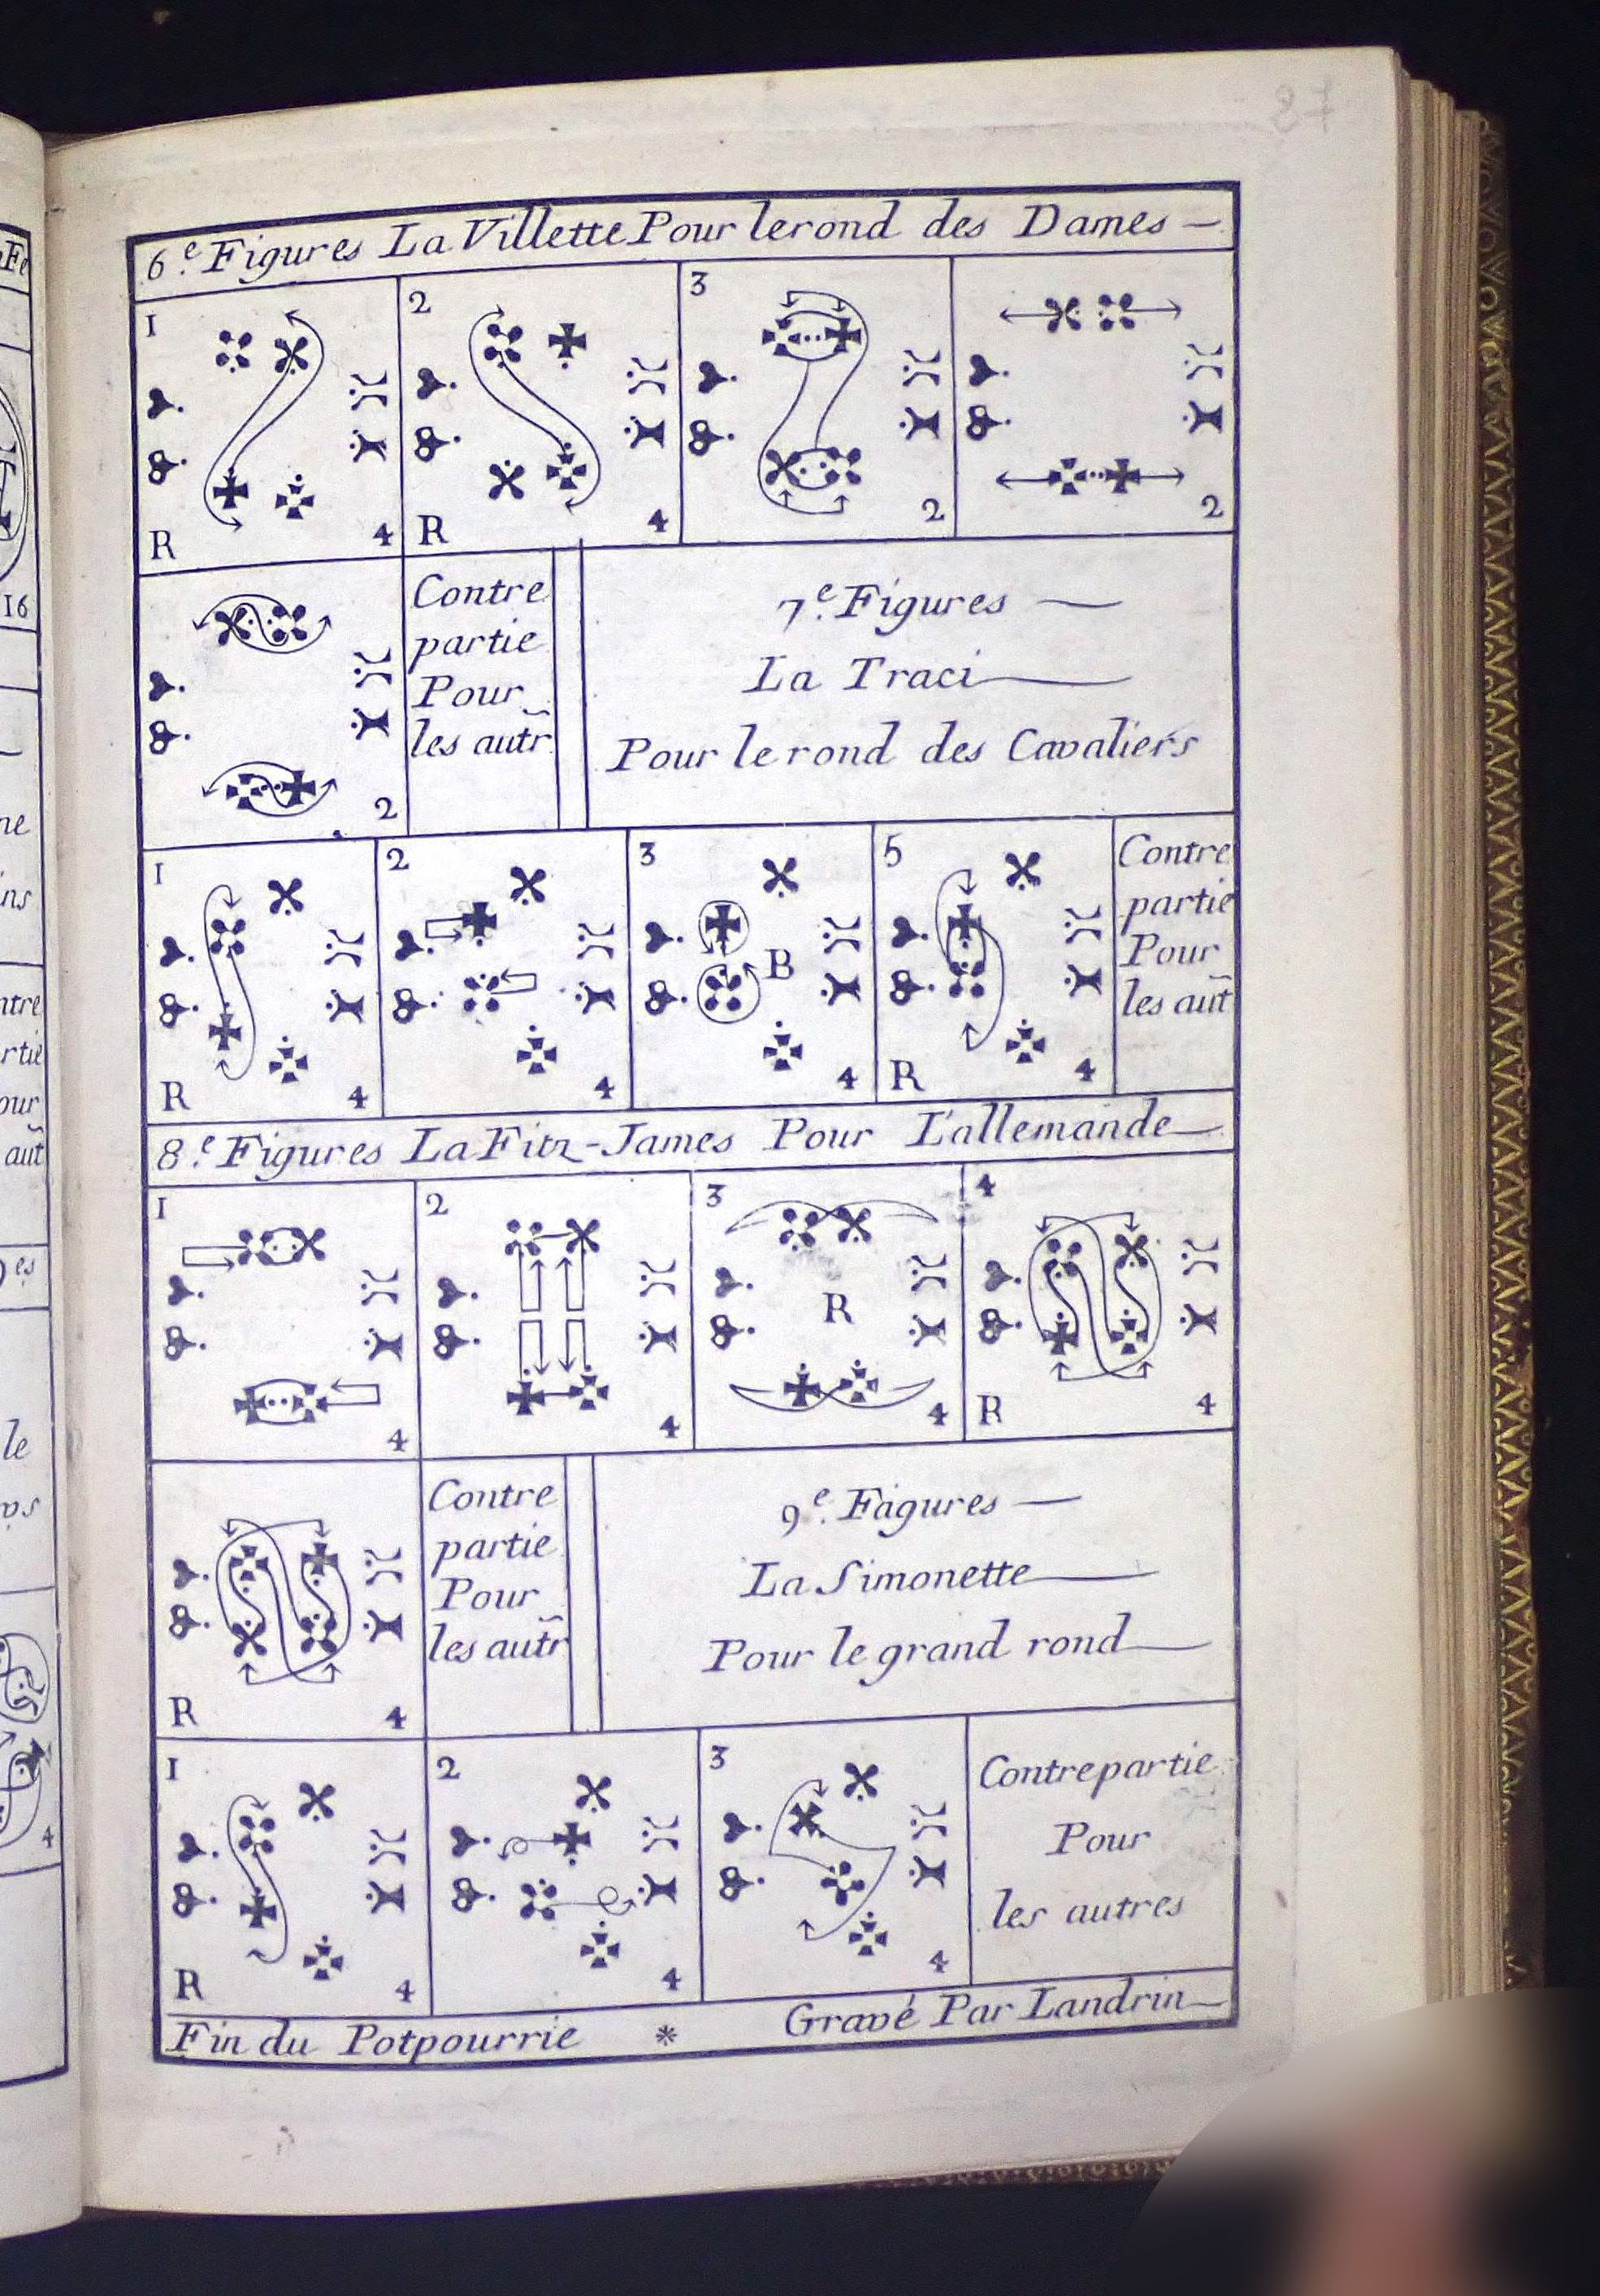 78
6.e Figures La Villette Pour le rond des Dames —
1
2
3
R 4
R 4
2
2
Contre
partie
Pour
les autr
2
7.e Figures —
La Traci
Pour le rond des Cavaliers
1
2
3
5
B
R 4
4
4
R 4
Contre
partie
Pour
les aut
8.e Figures La Fitz-James Pour L'allemande
1
2
3
4
R
4
4
4
R 4
R 4
Contre
partie
Pour
les autr
9.e Fagures —
La Simonette
Pour le grand rond
1
2
3
R 4
4
4
Contrepartie
Pour
les autres
Fin du Potpourrie * Gravé Par Landrin
16
ne
ins
ntre
rtie
our
aut
es
le
4